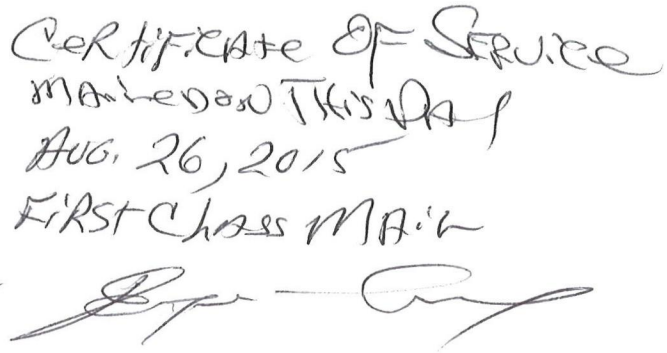 Certificate OF Service
mailed on This Day
Aug. 26, 2015
First Class Mail